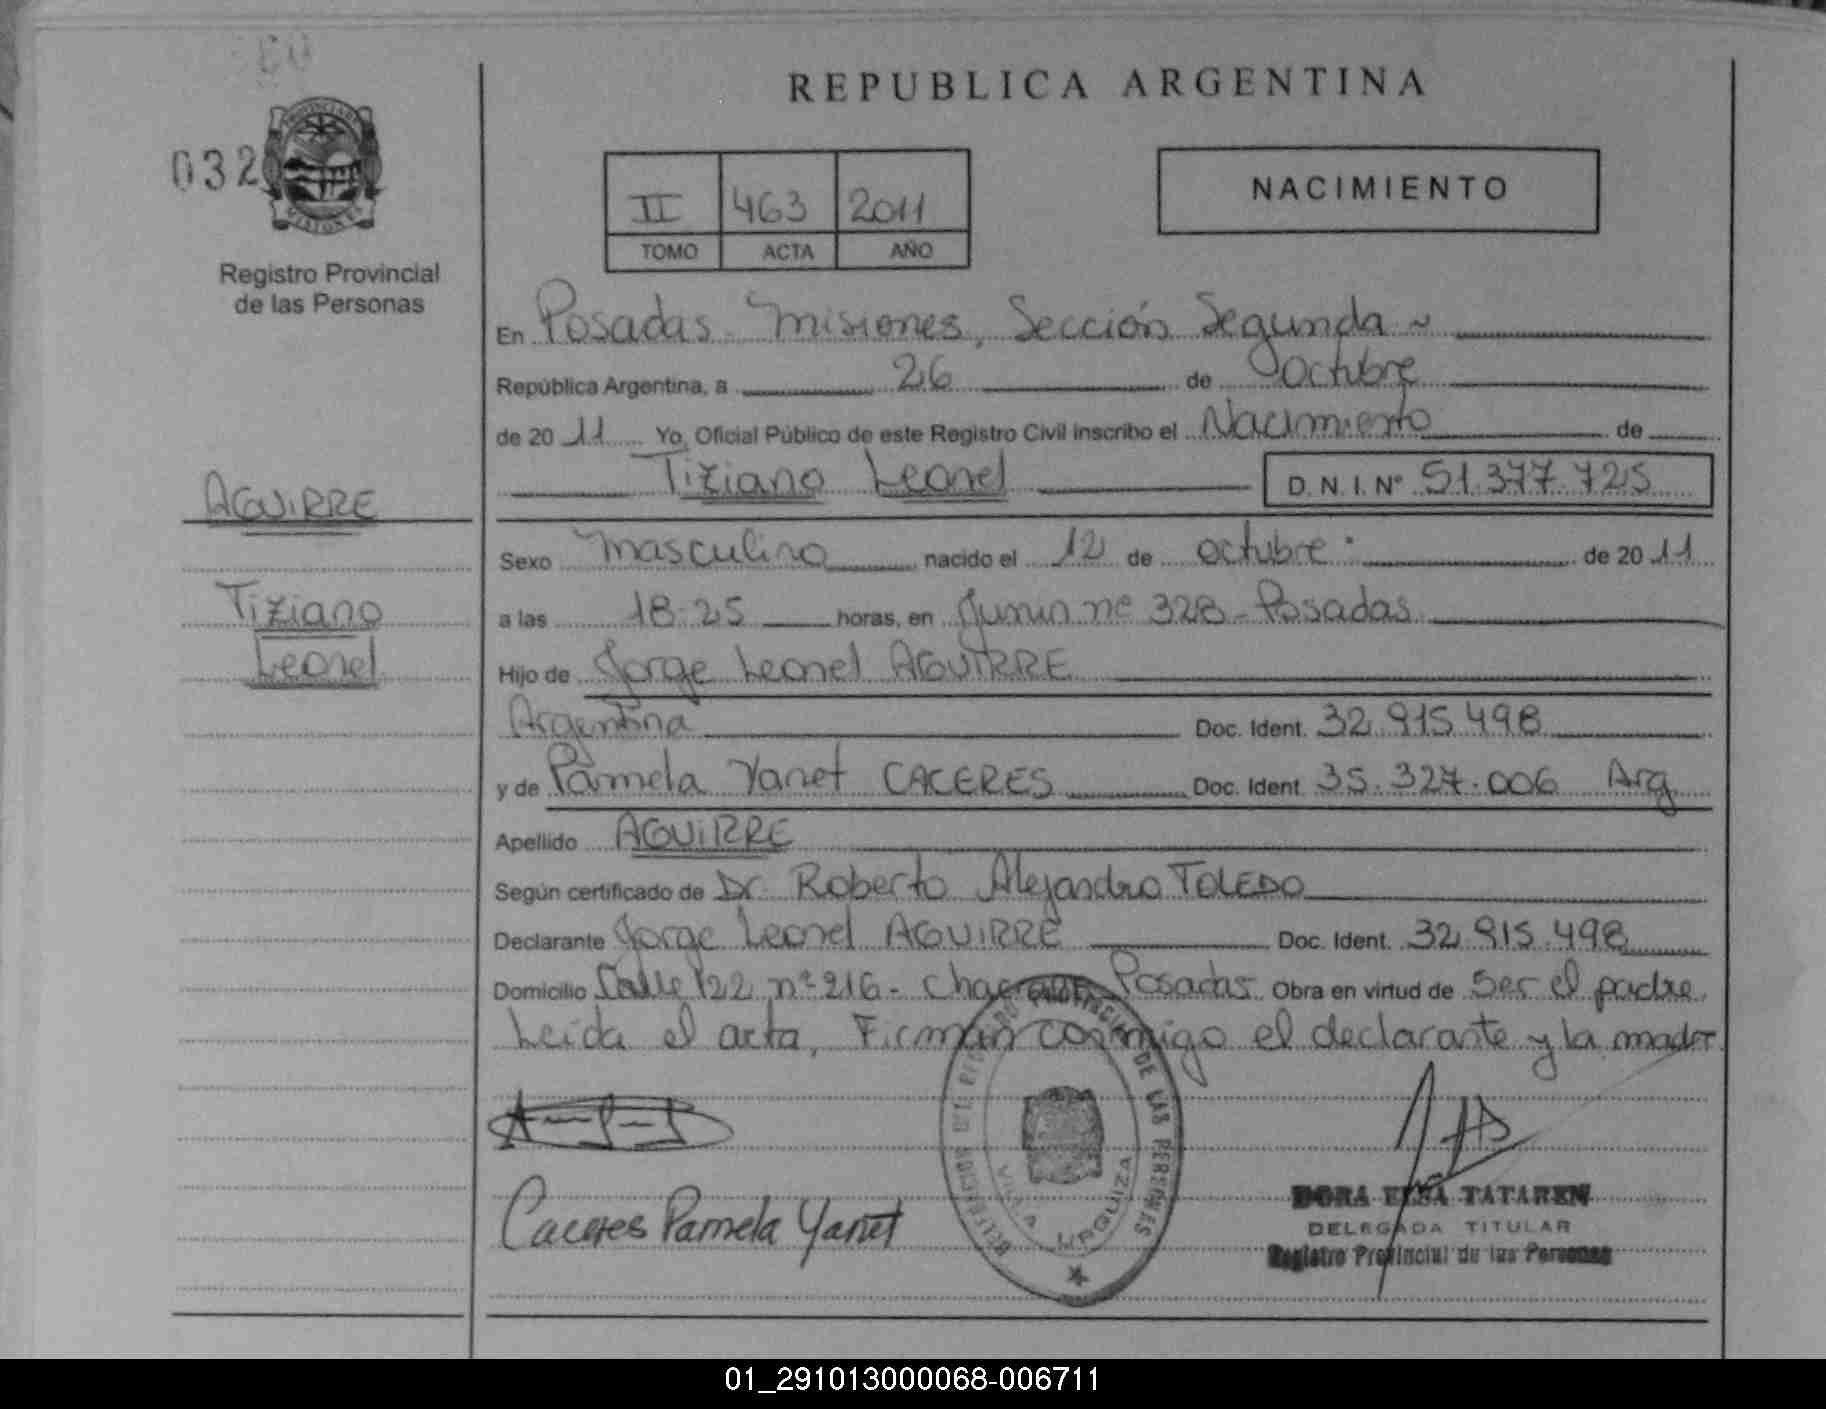 REPUBLICA ARGENTINA
032
PROVINCIA DE
MISIONES
Registro Provincial
de las Personas
II 463 2011
TOMO ACTA AÑO
NACIMIENTO
En Posadas Misiones, Sección Segunda ~
República Argentina, a 26 de Octubre
de 2011 Yo, Oficial Público de este Registro Civil inscribo el Nacimiento de
Tiziano Leonel D. N. I. Nº 51.377.725
AGUIRRE
Tiziano
Leonel
Sexo Masculino nacido el 12 de octubre de 2011
a las 18.25 horas, en Junin nº 328 - Posadas
Hijo de Jorge Leonel AGUIRRE
Argentina Doc. Ident. 32.915.498
y de Pamela Yanet CACERES Doc. Ident. 35.327.006 Arg
Apellido AGUIRRE
Según certificado de Dr. Roberto Alejandro TOLEDO
Declarante Jorge Leonel AGUIRRE Doc. Ident. 32.915.498
Domicilio Calle 122 nº 216 - Posadas Obra en virtud de Ser el padre.
Leida el acta, Firman conmigo el declarante y la madre
Caceres Pamela Yanet
DELEGACION DEL REGISTRO PROVINCIAL DE LAS PERSONAS
VILLA URQUIZA
DORA ELSA TATAREN
DELEGADA TITULAR
Registro Provincial de las Personas
01_291013000068-006711